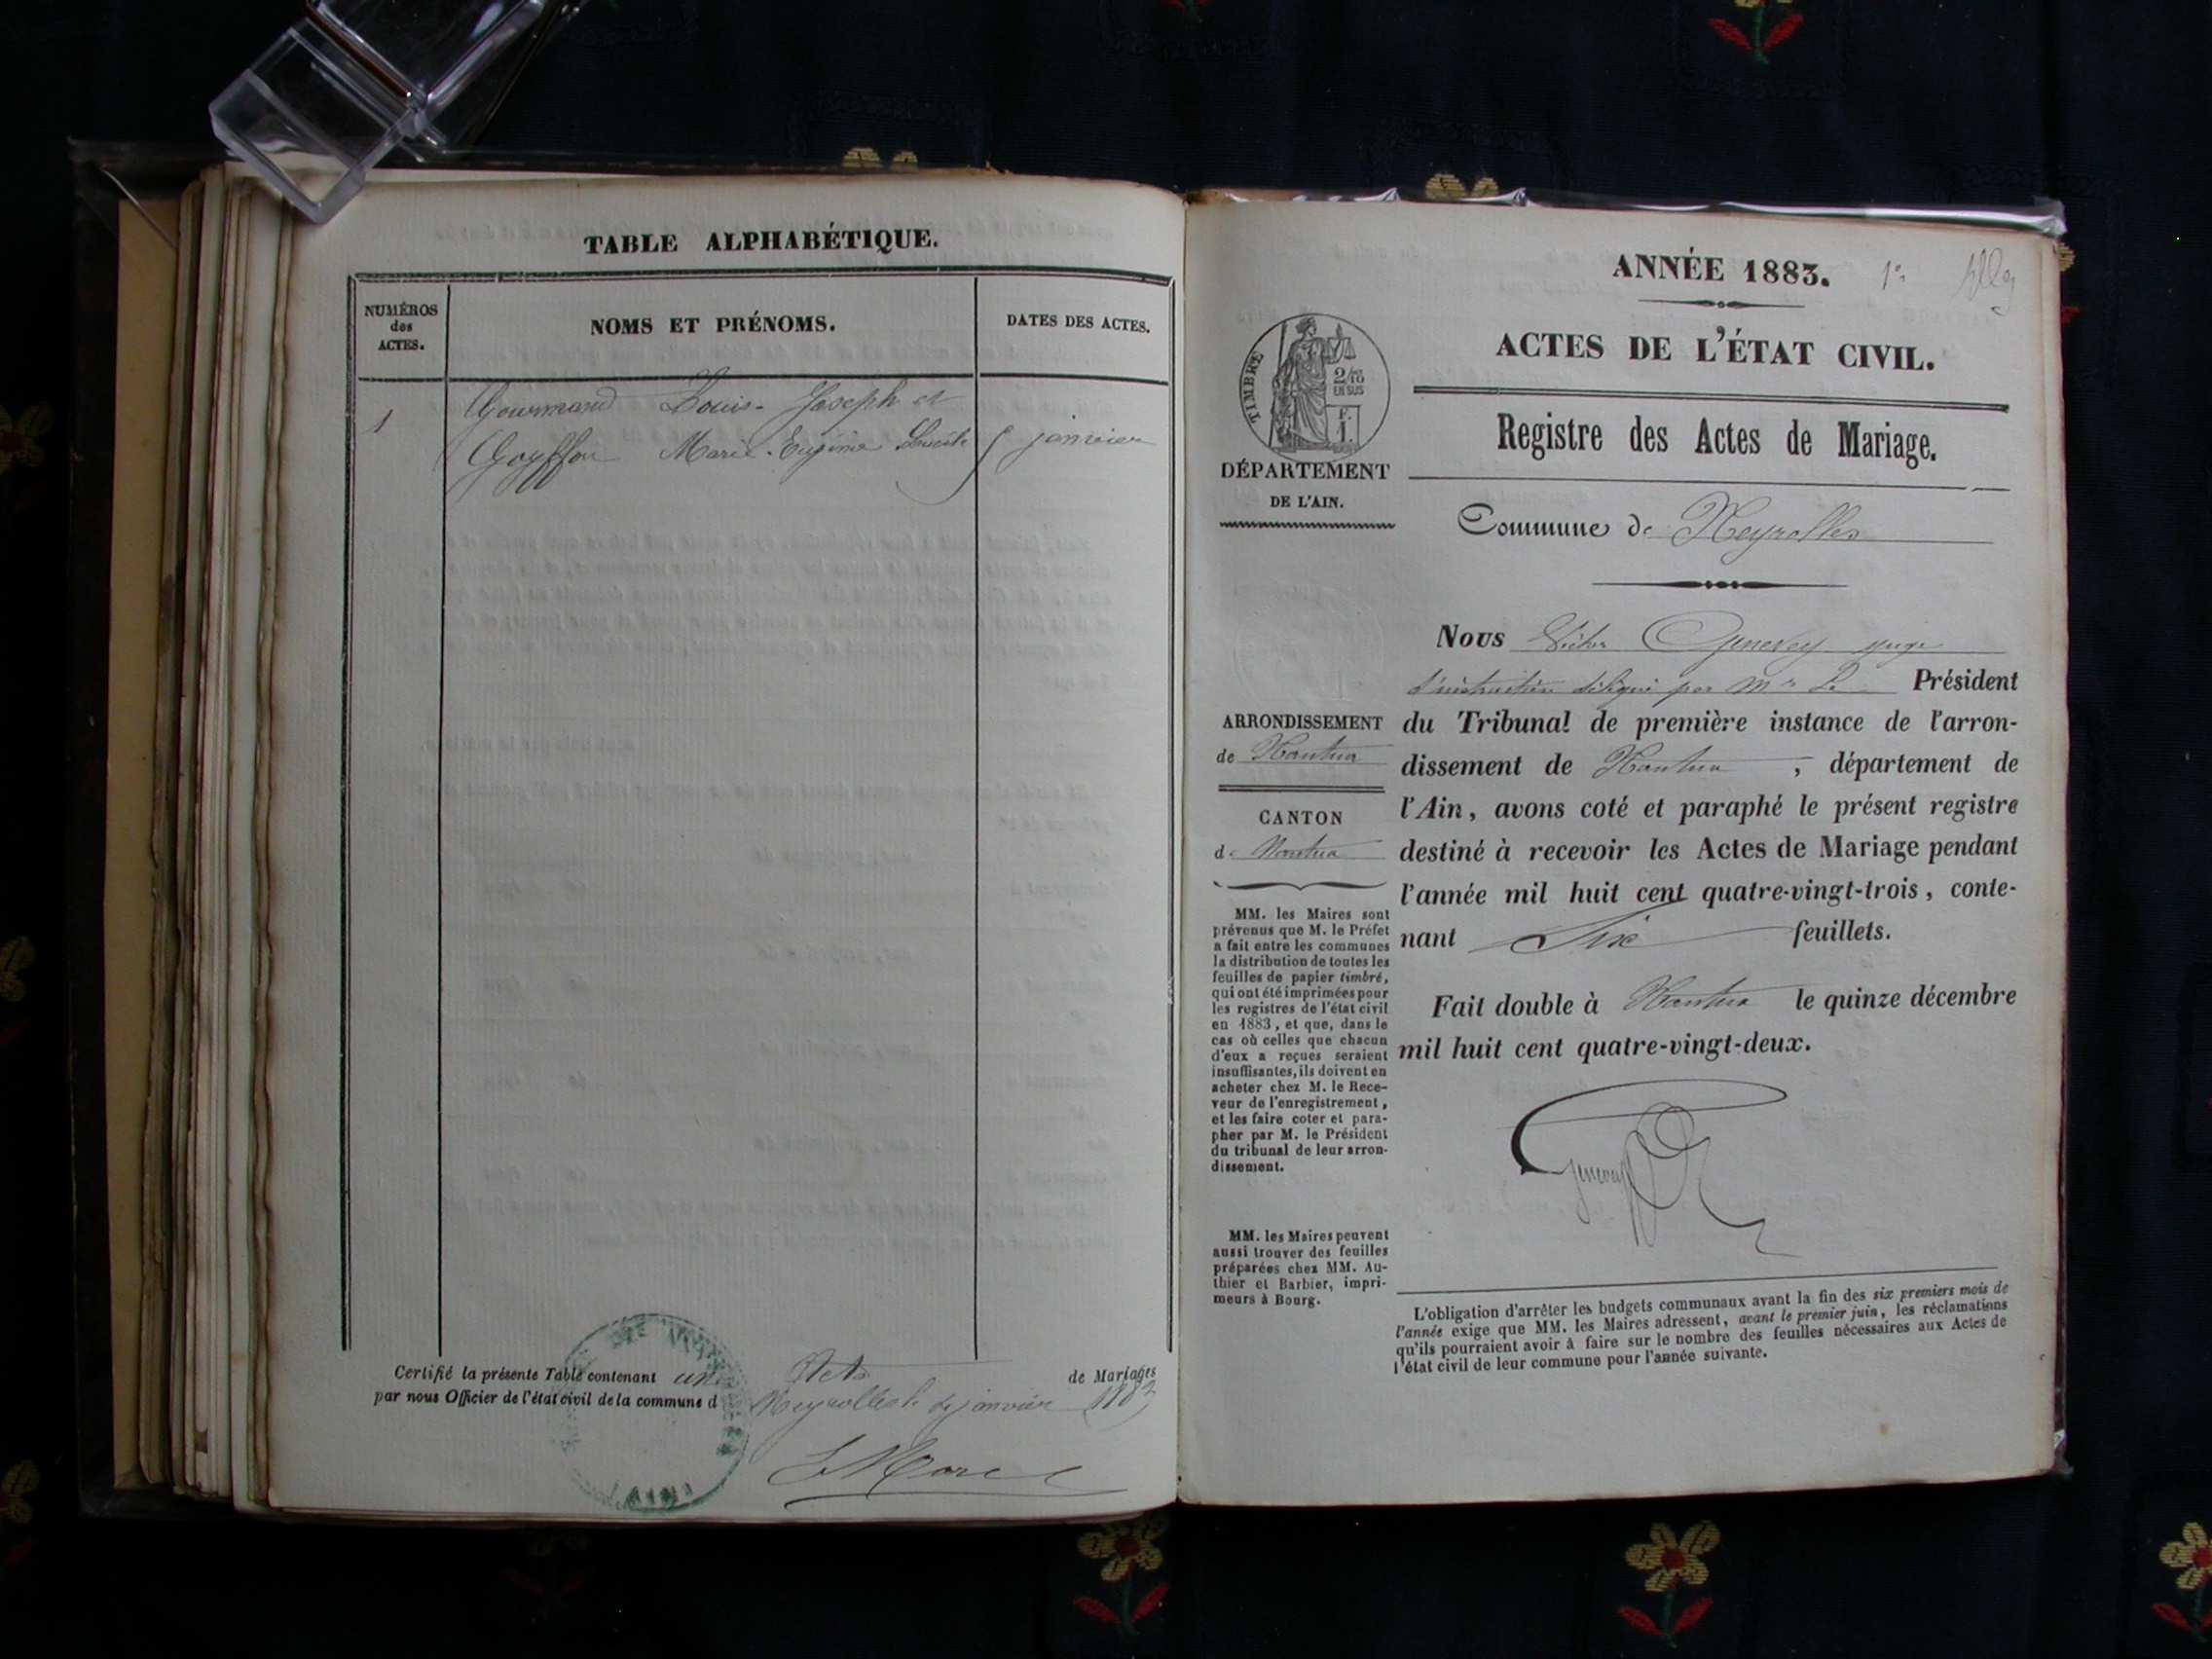 TABLE ALPHABÉTIQUE.
NUMÉROS
des
ACTES.
NOMS ET PRÉNOMS.
DATES DES ACTES.
1
Gourmand Louis-Joseph et
Goyffon Marie-Eugénie janvier
Certifié la présente Table contenant un Acte de Mariages
par nous Officier de l'état civil de la commune d Neyrolles le janvier 1883
Morel
ANNÉE 1883.
1er
ACTES DE L'ÉTAT CIVIL.
Registre des Actes de Mariage.
TIMBRE
2/10
EN SUS
DÉPARTEMENT
DE L'AIN.
Commune de Neyrolles
Nous Victor Genevey juge
d'instruction délégué par Mr Le Président
du Tribunal de première instance de l'arron-
dissement de Nantua, département de
l'Ain, avons coté et paraphé le présent registre
destiné à recevoir les Actes de Mariage pendant
l'année mil huit cent quatre-vingt-trois, conte-
nant Six feuillets.
Fait double à Nantua le quinze décembre
mil huit cent quatre-vingt-deux.
Genevey
ARRONDISSEMENT
de Nantua
CANTON
de Nantua
MM. les Maires sont
prévenus que M. le Préfet
a fait entre les communes
la distribution de toutes les
feuilles de papier timbré,
qui ont été imprimées pour
les registres de l'état civil
en 1883, et que, dans le
cas où celles que chacun
d'eux a reçues seraient
insuffisantes, ils doivent en
acheter chez M. le Rece-
veur de l'enregistrement,
et les faire coter et para-
pher par M. le Président
du tribunal de leur arron-
dissement.
MM. les Maires peuvent
aussi trouver des feuilles
préparées chez MM. Au-
thier et Barbier, impri-
meurs à Bourg.
L'obligation d'arrêter les budgets communaux avant la fin des six premiers mois de
l'année exige que MM. les Maires adressent, avant le premier juin, les réclamations
qu'ils pourraient avoir à faire sur le nombre des feuilles nécessaires aux Actes de
l'état civil de leur commune pour l'année suivante.